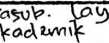 asub. lay
kademik